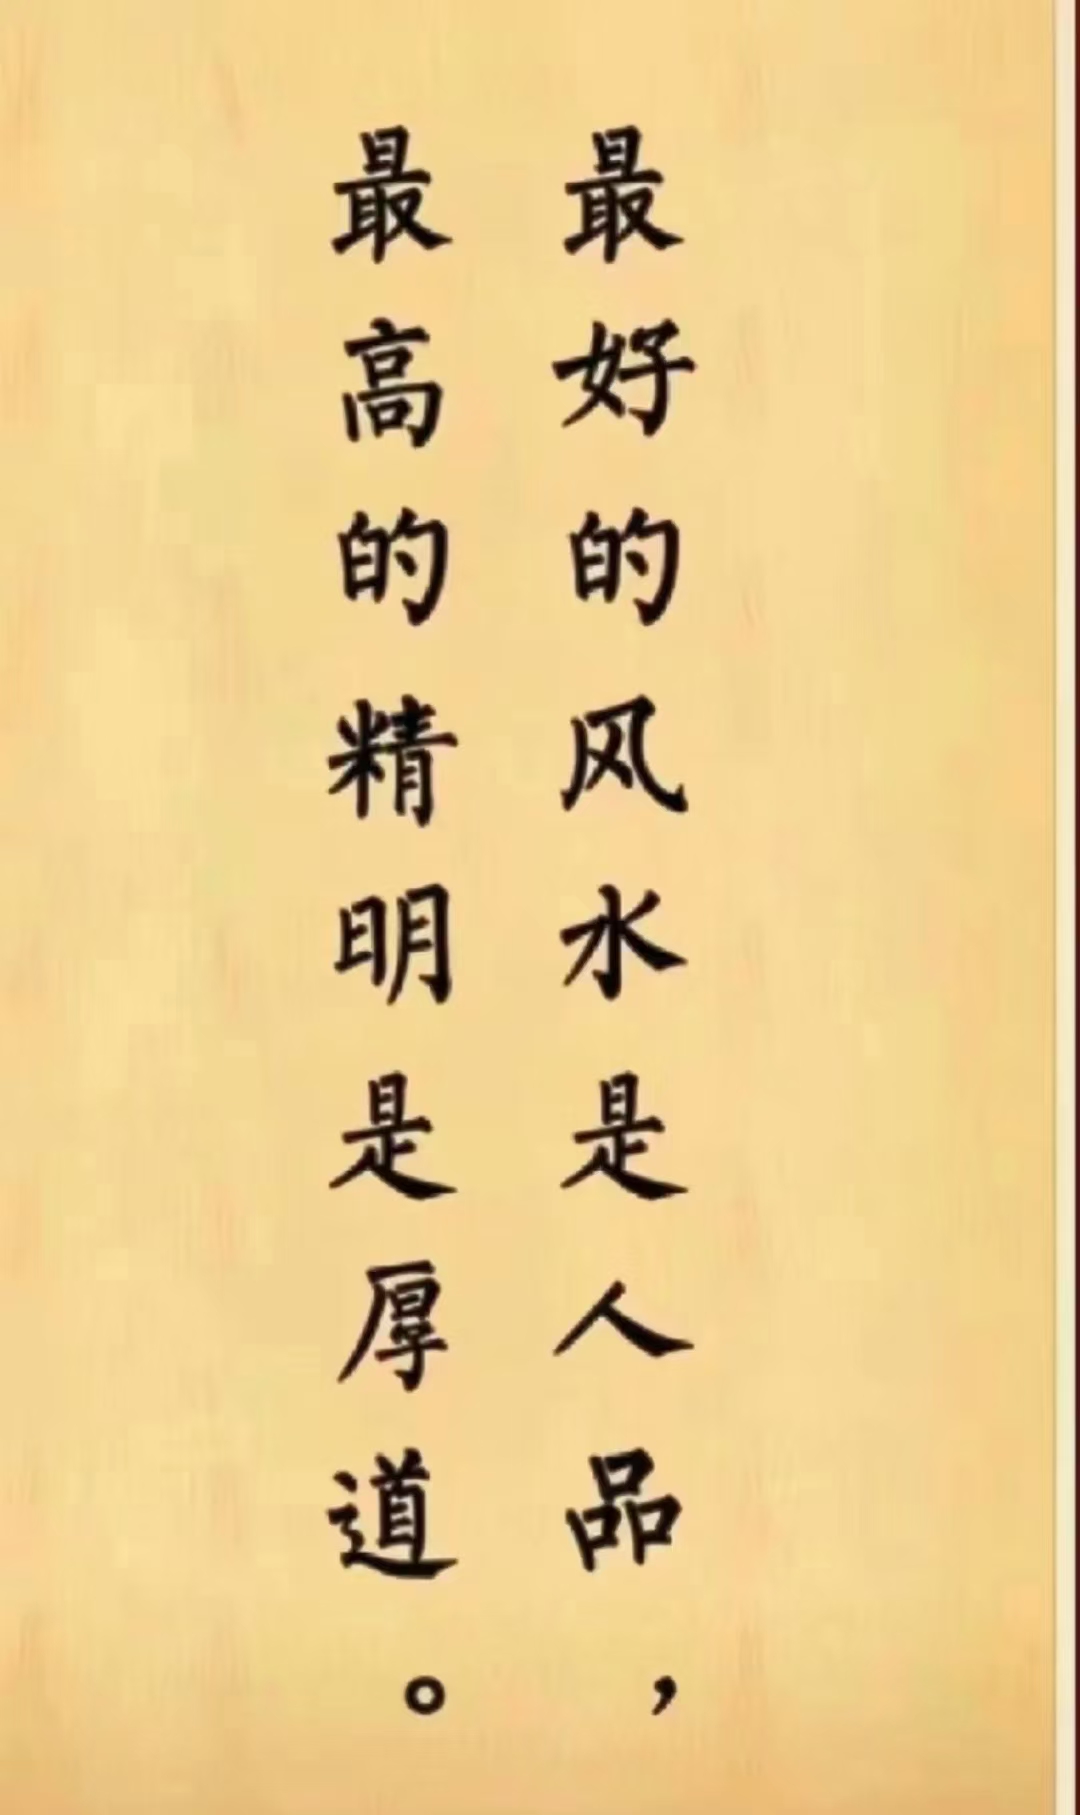 最好的风水是人品，
最高的精明是厚道。